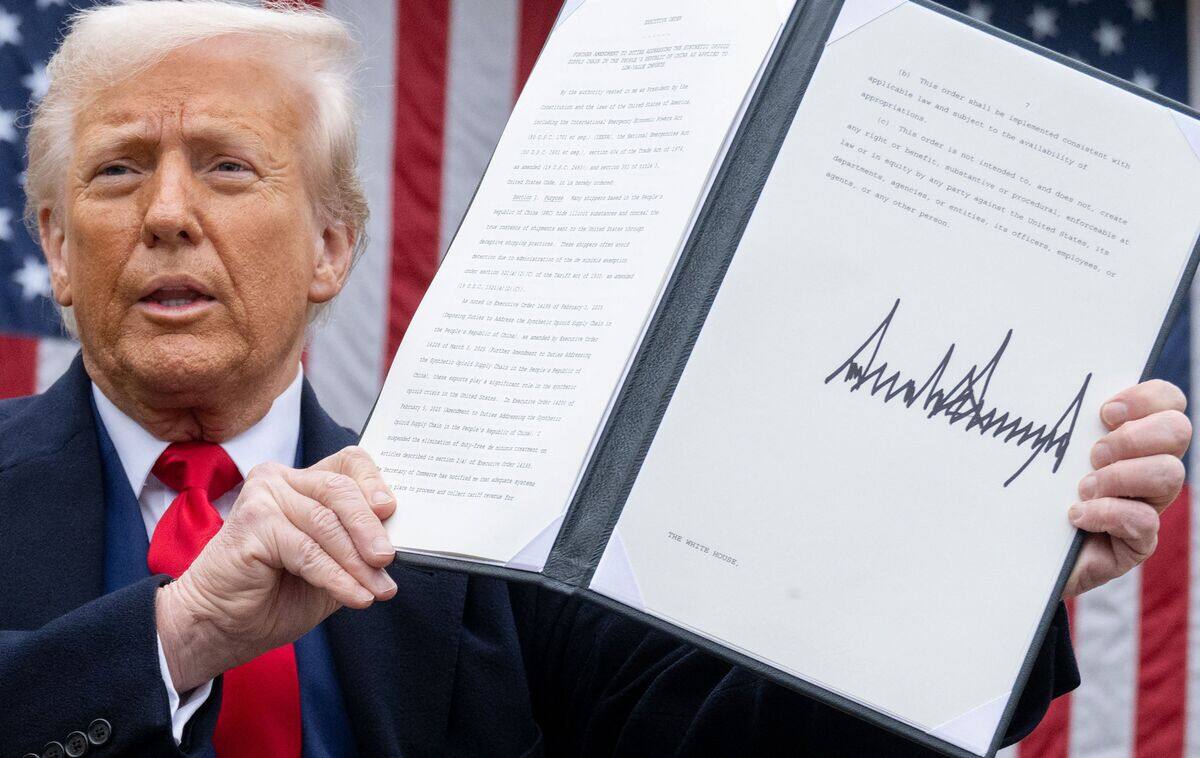 EXECUTIVE ORDER
- - - - - - -
FURTHER AMENDMENT TO DUTIES ADDRESSING THE SYNTHETIC OPIOID
SUPPLY CHAIN IN THE PEOPLE'S REPUBLIC OF CHINA AS APPLIED TO
LOW-VALUE IMPORTS
By the authority vested in me as President by the
Constitution and the laws of the United States of America,
including the International Emergency Economic Powers Act
(50 U.S.C. 1701 et seq.) (IEEPA), the National Emergencies Act
(50 U.S.C. 1601 et seq.), section 604 of the Trade Act of 1974,
as amended (19 U.S.C. 2483), and section 301 of title 3,
United States Code, it is hereby ordered:
Section 1. Purpose. Many shippers based in the People's
Republic of China (PRC) hide illicit substances and conceal the
true contents of shipments sent to the United States through
deceptive shipping practices. These shippers often avoid
detection due to administration of the de minimis exemption
under section 321(a)(2)(C) of the Tariff Act of 1930, as amended
(19 U.S.C. 1321(a)(2)(C)).
As noted in Executive Order 14195 of February 1, 2025
(Imposing Duties to Address the Synthetic Opioid Supply Chain in
the People's Republic of China), as amended by Executive Order
14228 of March 3, 2025 (Further Amendment to Duties Addressing
the Synthetic Opioid Supply Chain in the People's Republic of
China), these exports play a significant role in the synthetic
opioid crisis in the United States. In Executive Order 14200 of
February 5, 2025 (Amendment to Duties Addressing the Synthetic
Opioid Supply Chain in the People's Republic of China), I
suspended the elimination of duty-free de minimis treatment on
articles described in section 2(a) of Executive Order 14195.
Secretary of Commerce has notified me that adequate systems
place to process and collect tariff revenue for
(b) This order shall be implemented consistent with
applicable law and subject to the availability of
appropriations.
(c) This order is not intended to, and does not, create
any right or benefit, substantive or procedural, enforceable at
law or in equity by any party against the United States, its
departments, agencies, or entities, its officers, employees, or
agents, or any other person.
THE WHITE HOUSE,